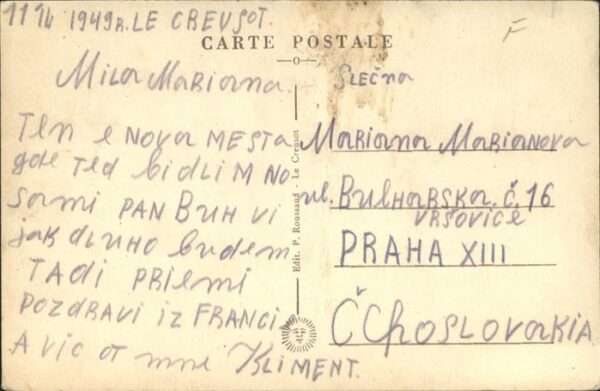 11 14 1949 R. LE CREUSOT.
CARTE POSTALE
F
MILA MARIANA.
TEN E NOVA MESTA
gde TED bIDLIM NO
SAMI PAN BUH VI
jAK dLUHO budem
TADI PRIEMI
POZDRAVI IZ FRANCI
A VIC OT MNE KLIMENT.
Edit. P. Roussaud - Le Creusot
SLEČNA
MARIANA MARIANOVA
ul. BULHARSKA. Č. 16
VRŠOVICE
PRAHA XIII
ČChOSLOVAKIA